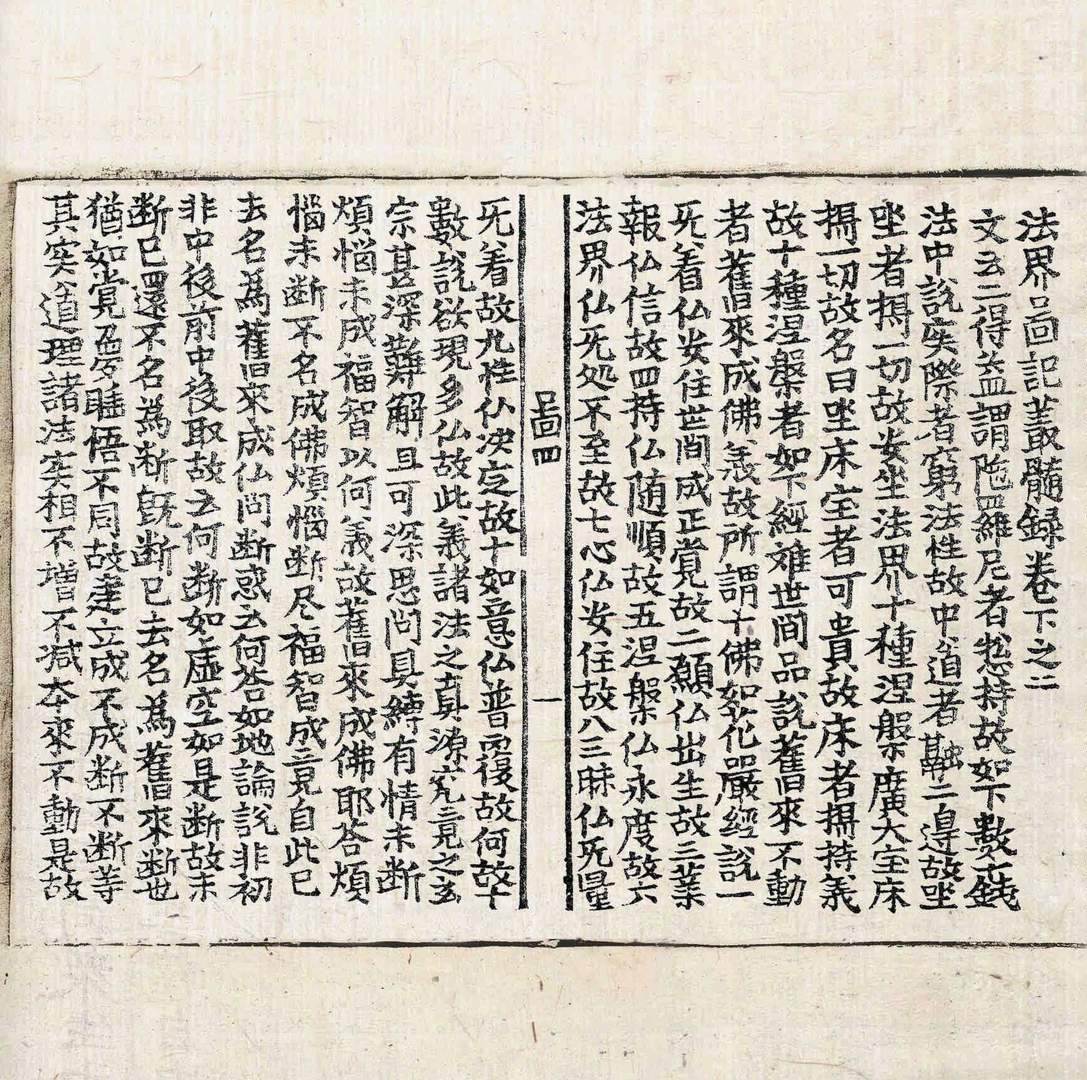 法界啚記䕺髓録卷下之二
文云二得益謂陁羅尼者惣持故如下數十錢
法中說实際者窮法性故中道者融二邉故坐
坐者揔一切故安坐法界十種涅槃廣大宝床
揔一切故名曰坐床宝者可貴故床者揔持義
故十種涅槃者如下經难世間品說舊来不動
者舊来成佛義故所謂十佛如花嚴經說一
无着仏安住世間成正覺故二願仏出生故三業
報仏信故四持仏随順故五涅槃仏永度故六
法界仏无処不至故七心仏安住故八三昧仏无量
啚四
一
无着故九性仏决定故十如意仏普覆故何故十
數說欲現多仏故此義諸法之真源究竟之玄
宗甚深難解且可深思问具縛有情未断
煩惱未成福智以何義故舊来成佛耶答煩
惱未断不名成佛煩惱断尽福智成竟自此已
去名為舊来成仏问断惑云何答如地論說非初
非中後前中後取故云何断如虛空如是断故未
断已還不名為断旣断已去名為舊来断也
猶如覺夢睡悟不同故建立成不成断不断等
其实道理諸法实相不增不减夲来不動是故